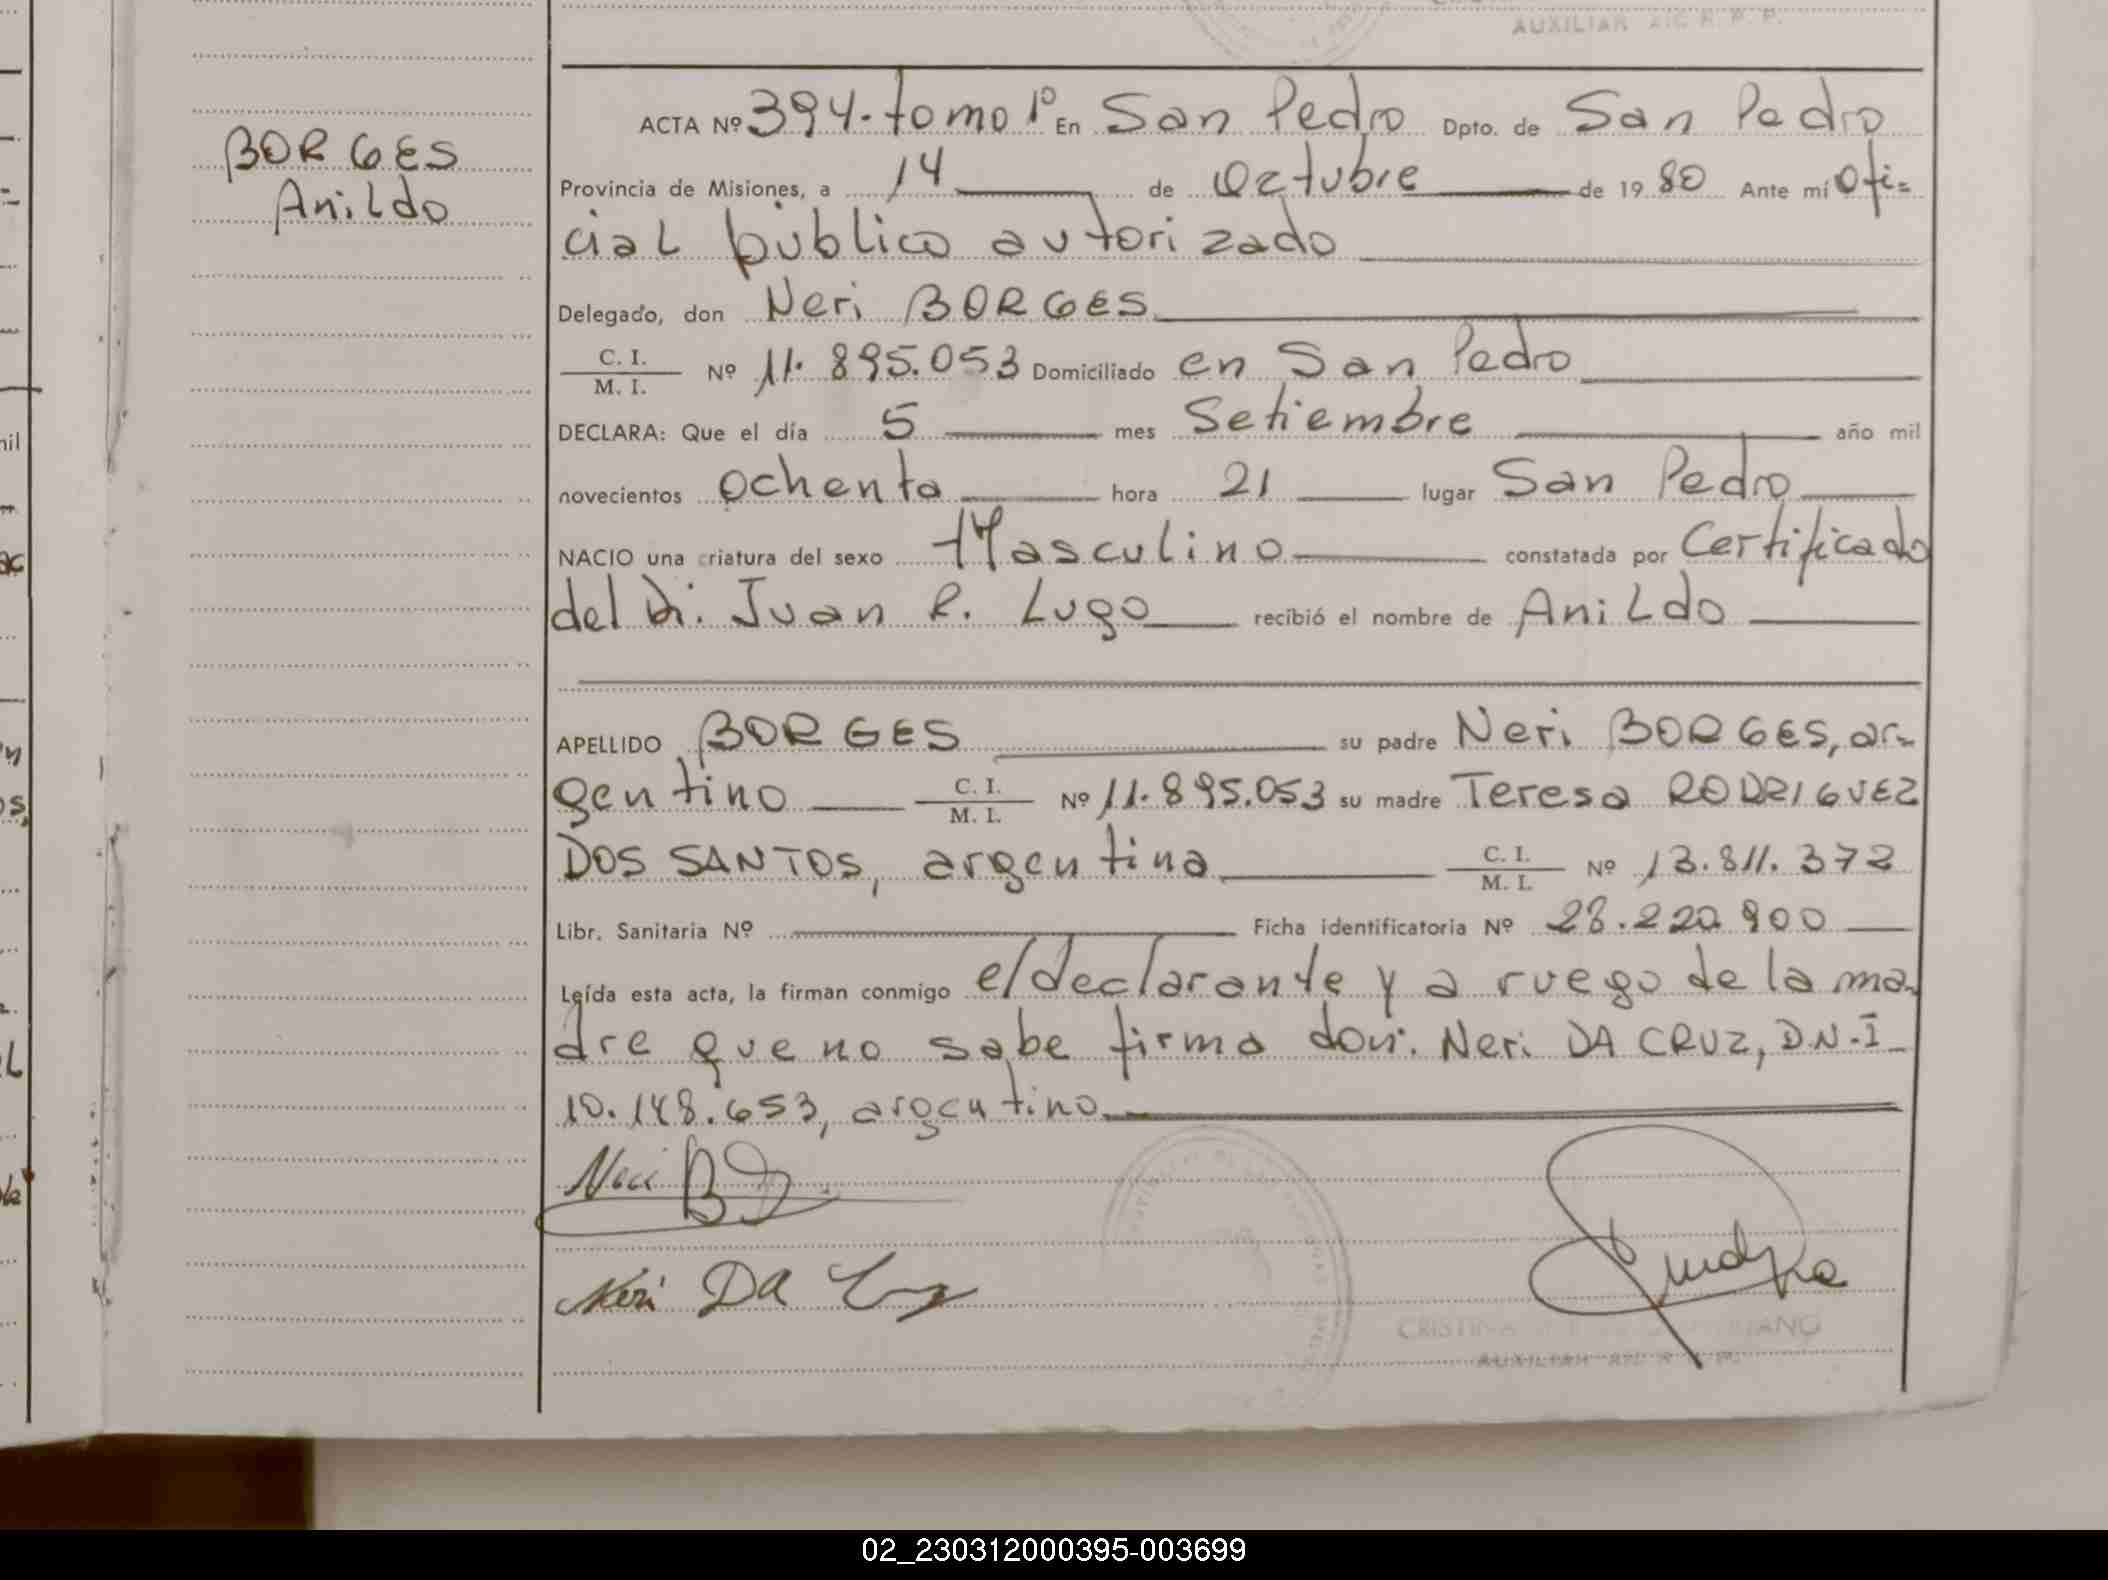 AUXILIAR
BORGES
Anildo
ACTA Nº 394. tomo 1º En San Pedro Dpto. de San Pedro
Provincia de Misiones, a 14 de Octubre de 1980 Ante mí Ofi=
cial público autorizado
Delegado, don Neri BORGES
C. I.
M. I. Nº 11.895.053 Domiciliado en San Pedro
DECLARA: Que el día 5 mes Setiembre año mil
novecientos ochenta hora 21 lugar San Pedro
NACIO una criatura del sexo Masculino constatada por Certificado
del Dr. Juan R. Lugo recibió el nombre de Anildo
APELLIDO BORGES su padre Neri BORGES, ar-
gentino C. I.
M. I. Nº 11.895.053 su madre Teresa RODRIGUEZ
DOS SANTOS, argentina C. I.
M. I. Nº 13.811.372
Libr. Sanitaria Nº Ficha identificatoria Nº 28.220.900
Leída esta acta, la firman conmigo el declarante y a ruego de la ma-
dre que no sabe firma don: Neri DA CRUZ, D.N.I
10.148.653, argentino
Neri B
Neri DA Cruz
CRISTINA
AUXILIAR
02_230312000395-003699